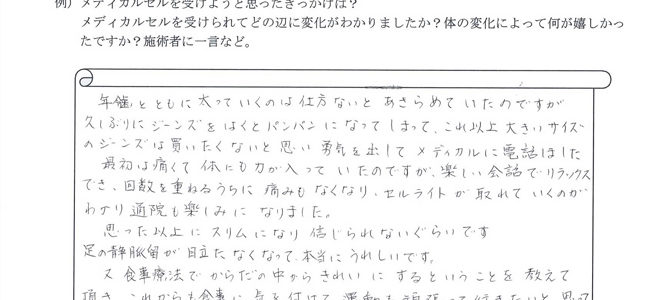 例）メディカルセルを受けようと思ったきっかけは？
メディカルセルを受けられてどの辺に変化がわかりましたか？体の変化によって何が嬉しかっ
たですか？施術者に一言など。
年齢とともに太っていくのは仕方ないとあきらめていたのですが
久しぶりにジーンズをはくとパンパンになってしまって、これ以上大きいサイズ
のジーンズは買いたくないと思い勇気を出してメディカルに電話しました
最初は痛くて体にも力が入っていたのですが、楽しい会話でリラックス
でき、回数を重ねるうちに痛みもなくなり、セルライトが取れていくのが
わかり通院も楽しみになりました。
思った以上にスリムになり信じられないぐらいです
足の静脈瘤が目立たなくなって、本当にうれしいです。
又食事療法でからだの中からきれいにするということを教えて
頂き、これからも食事に気を付けて運動も頑張って行きたいと思って